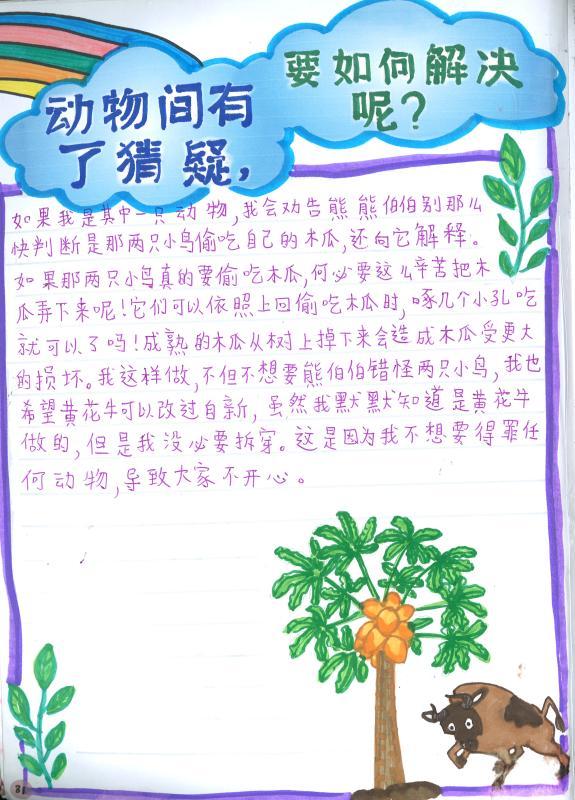 动物间有
了猜疑，
要如何解决
呢？
如果我是其中一只动物，我会劝告熊熊伯伯别那么
快判断是那两只小鸟偷吃自己的木瓜，还向它解释。
如果那两只小鸟真的要偷吃木瓜，何必要这么辛苦把木
瓜弄下来呢！它们可以依照上回偷吃木瓜时，啄几个小孔吃
就可以了吗！成熟的木瓜从树上掉下来会造成木瓜受更大
的损坏。我这样做，不但不想要熊伯伯错怪两只小鸟，我也
希望黄花牛可以改过自新，虽然我默默知道是黄花牛
做的，但是我没必要拆穿。这是因为我不想要得罪任
何动物，导致大家不开心。
18